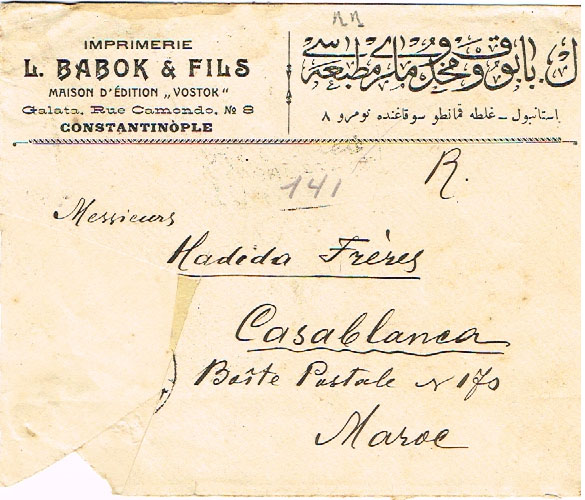 IMPRIMERIE
L. BABOK & FILS
MAISON D'ÉDITION „VOSTOK“
Galata, Rue Camondo, № 8
CONSTANTINÒPLE
ل. بابوق و مخدوملری مطبعه‌سی
استانبول – غلطه قماندو سوقاغنده نومرو ٨
R.
141
Messieurs
Hadida Frères
Casablanca
Boîte Postale N 170
Maroc